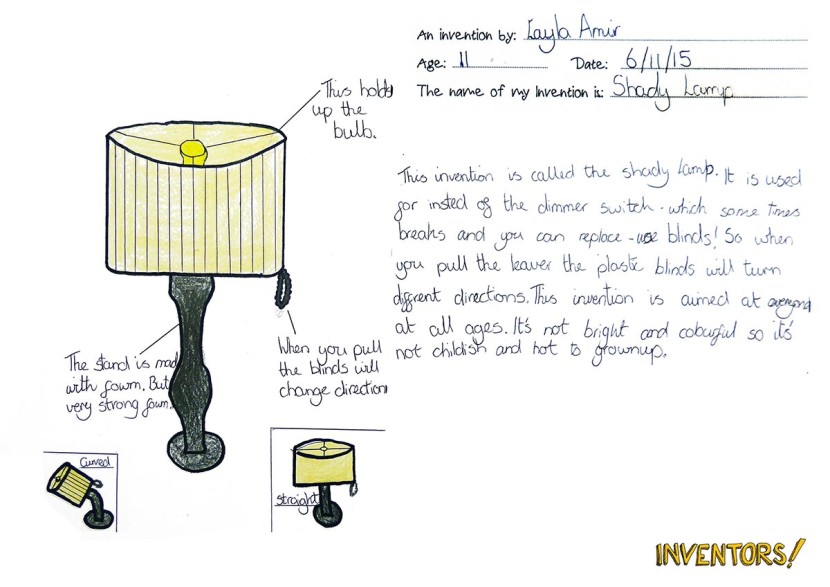 An invention by: Layla Amir
Age: 11 Date: 6/11/15
The name of my Invention is: Shady Lamp
This holds
up the
bulb.
This invention is called the shady Lamp. It is used
for insted of the dimmer switch - which some times
breaks and you can replace - use blinds! So when
you pull the leaver the plastic blinds will turn
diffrent directions. This invention is aimed at everyone
at all ages. It's not bright and colourful so it's
not childish and not to grownup.
The stand is made
with fowm. But
very strong fowm.
When you pull
the blinds will
change direction
Curved
straight
INVENTORS!